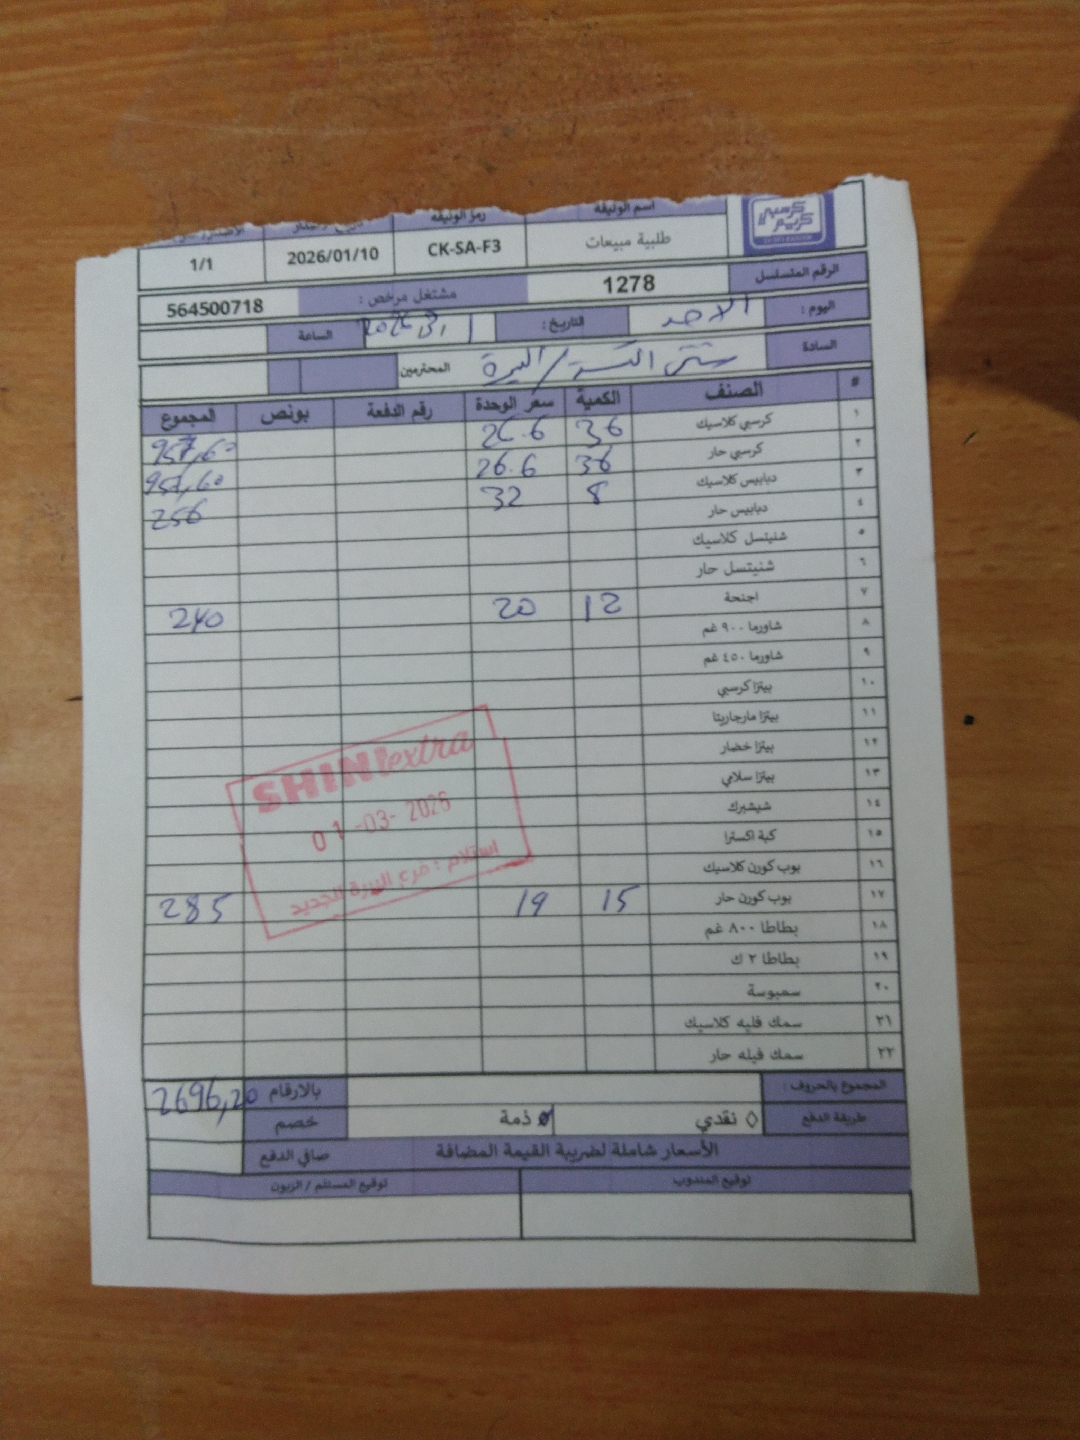 كرسبي كريم
اسم الوثيقة رمز الوثيقة
طلبية مبيعات CK-SA-F3 2026/01/10 1/1
الرقم المتسلسل 1278 مشتغل مرخص : 564500718
اليوم : الاحد التاريخ : 1/3/2026 الساعة
السادة شني اكسترا / البيرة المحترمين
# الصنف الكمية سعر الوحدة رقم الدفعة بونص المجموع
١ كرسبي كلاسيك 36 26.6 957,60
٢ كرسبي حار 36 26.6 957,60
٣ دبابيس كلاسيك 8 32 256
٤ دبابيس حار
٥ شنيتسل كلاسيك
٦ شنيتسل حار
٧ اجنحة 12 20 240
٨ شاورما ٩٠٠ غم
٩ شاورما ٤٥٠ غم
١٠ بيتزا كرسبي
١١ بيتزا مارجاريتا
١٢ بيتزا خضار
١٣ بيتزا سلامي
١٤ شيشبرك
١٥ كبة اكسترا
١٦ بوب كورن كلاسيك
١٧ بوب كورن حار 15 19 285
١٨ بطاطا ٨٠٠ غم
١٩ بطاطا ٢ ك
٢٠ سمبوسة
٢١ سمك فليه كلاسيك
٢٢ سمك فيله حار
SHINI extra
01-03-2026
استلام : فرع البيرة الجديد
المجموع بالحروف : بالارقام 2696,20
طريقة الدفع نقدي ذمة خصم
الأسعار شاملة لضريبة القيمة المضافة صافي الدفع
توقيع المندوب توقيع المستلم / الزبون